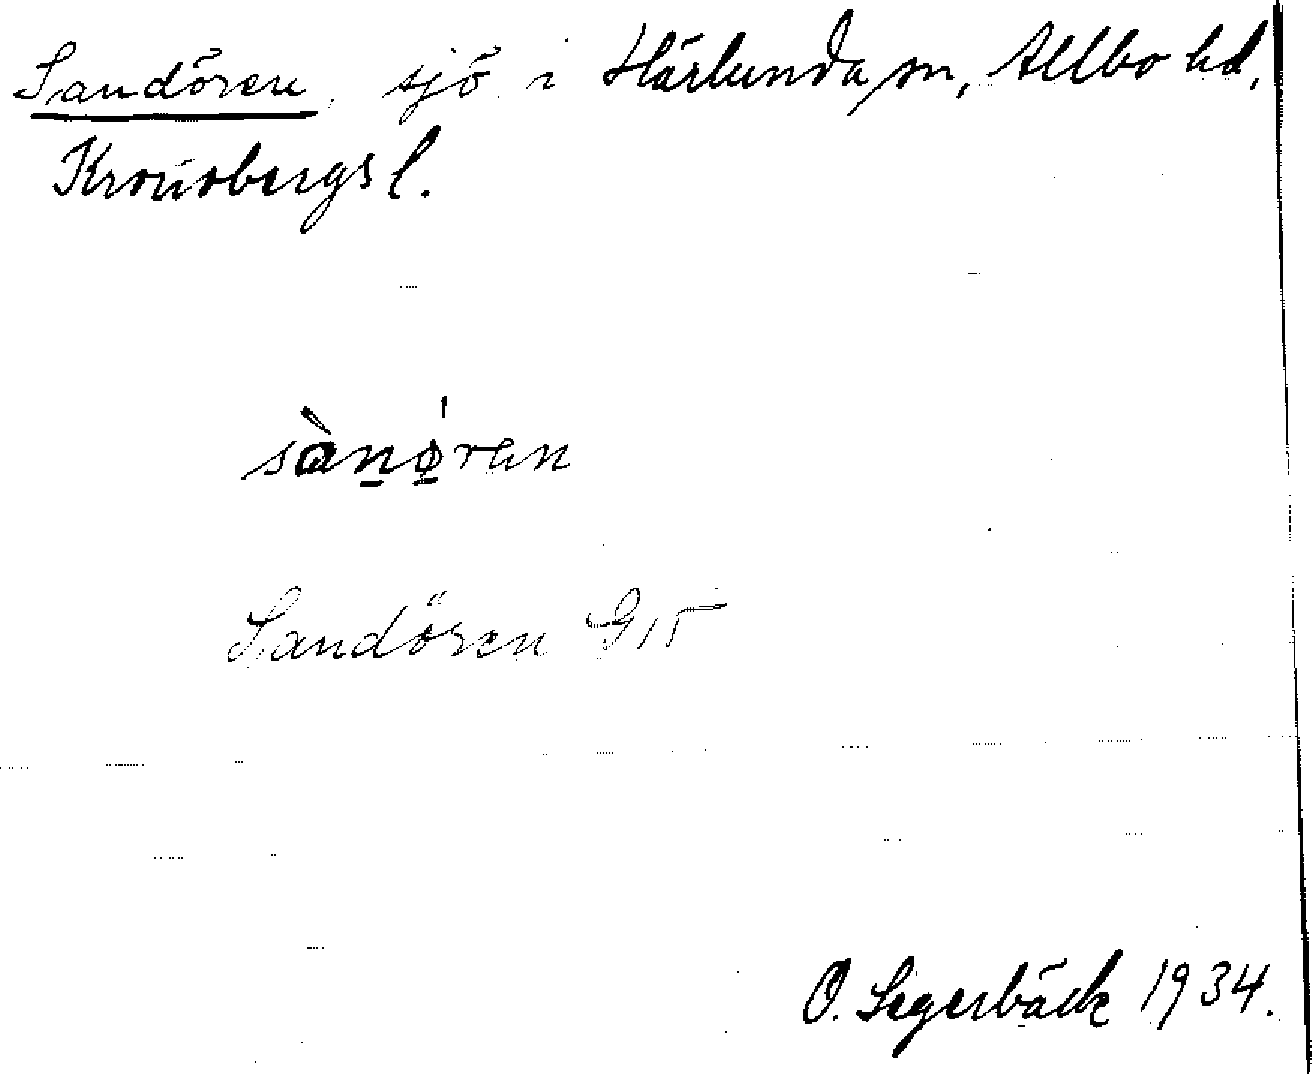 Sandören, sjö i Härlunda sn, Allbo hd,
Kronobergs l.
sàn̠ǿ̠ran
Sandören G15
O. Segerbäck 1934.